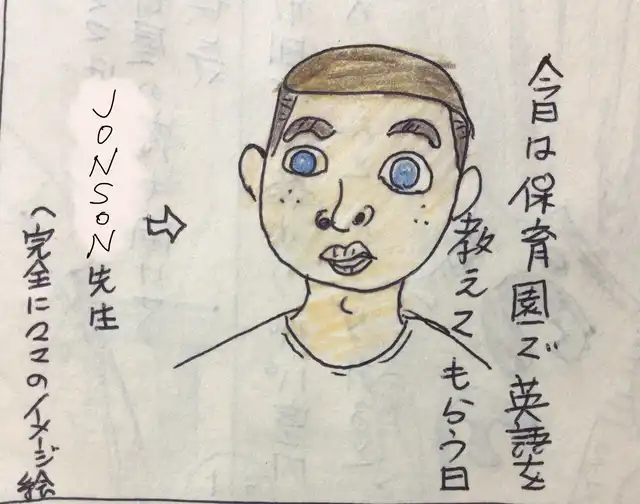 今日は保育園で英語を
教えてもらう日
JONSON先生
へ完全にママのイメージ絵